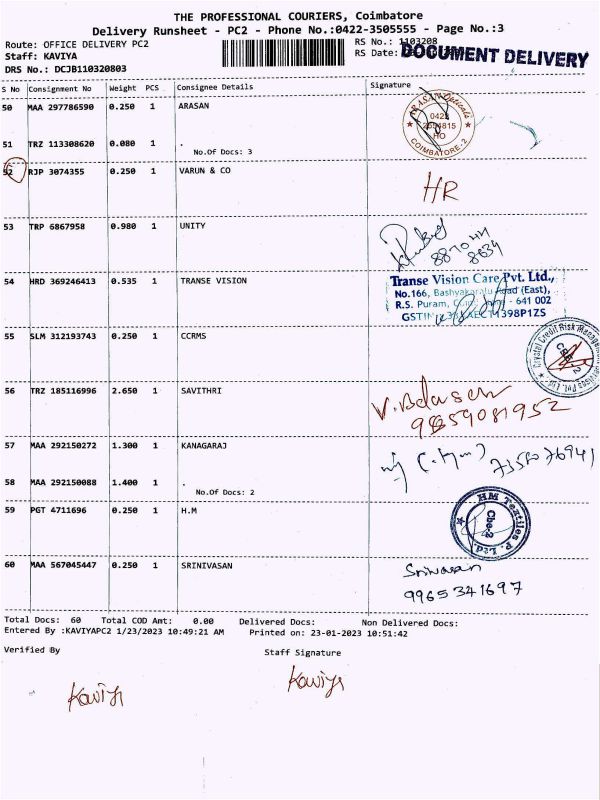 THE PROFESSIONAL COURIERS, Coimbatore
Delivery Runsheet - PC2 - Phone No.:0422-3505555 - Page No.:3
Route: OFFICE DELIVERY PC2
RS No.: 1103208
Staff: KAVIYA
RS Date:
DOCUMENT DELIVERY
DRS No.: DCJB110320803
S No Consignment No Weight PCS Consignee Details Signature
50 MAA 297786590 0.250 1 ARASAN
ARASAN
0422
HO
COIMBATORE-2
51 TRZ 113308620 0.080 1 .
No.Of Docs: 3
52 RJP 3074355 0.250 1 VARUN & CO
HR
53 TRP 6867958 0.980 1 UNITY
88704
8634
54 HRD 369246413 0.535 1 TRANSE VISION
Transe Vision Care Pvt. Ltd.,
No.166, Bashyakaralu Road (East),
R.S. Puram, - 641 002
GSTIN 1398P1ZS
55 SLM 312193743 0.250 1 CCRMS
Crystal Credit Risk Management Services Pvt. Ltd.
CBE-2
56 TRZ 185116996 2.650 1 SAVITHRI
57 MAA 292150272 1.300 1 KANAGARAJ
7358076941
58 MAA 292150088 1.400 1 .
No.Of Docs: 2
59 PGT 4711696 0.250 1 H.M
HM Textiles P. Ltd.
Cbe-2
60 MAA 567045447 0.250 1 SRINIVASAN
Srinivasan
9965341697
Total Docs: 60 Total COD Amt: 0.00 Delivered Docs: Non Delivered Docs:
Entered By :KAVIYAPC2 1/23/2023 10:49:21 AM Printed on: 23-01-2023 10:51:42
Verified By Staff Signature
Kaviya Kaviya